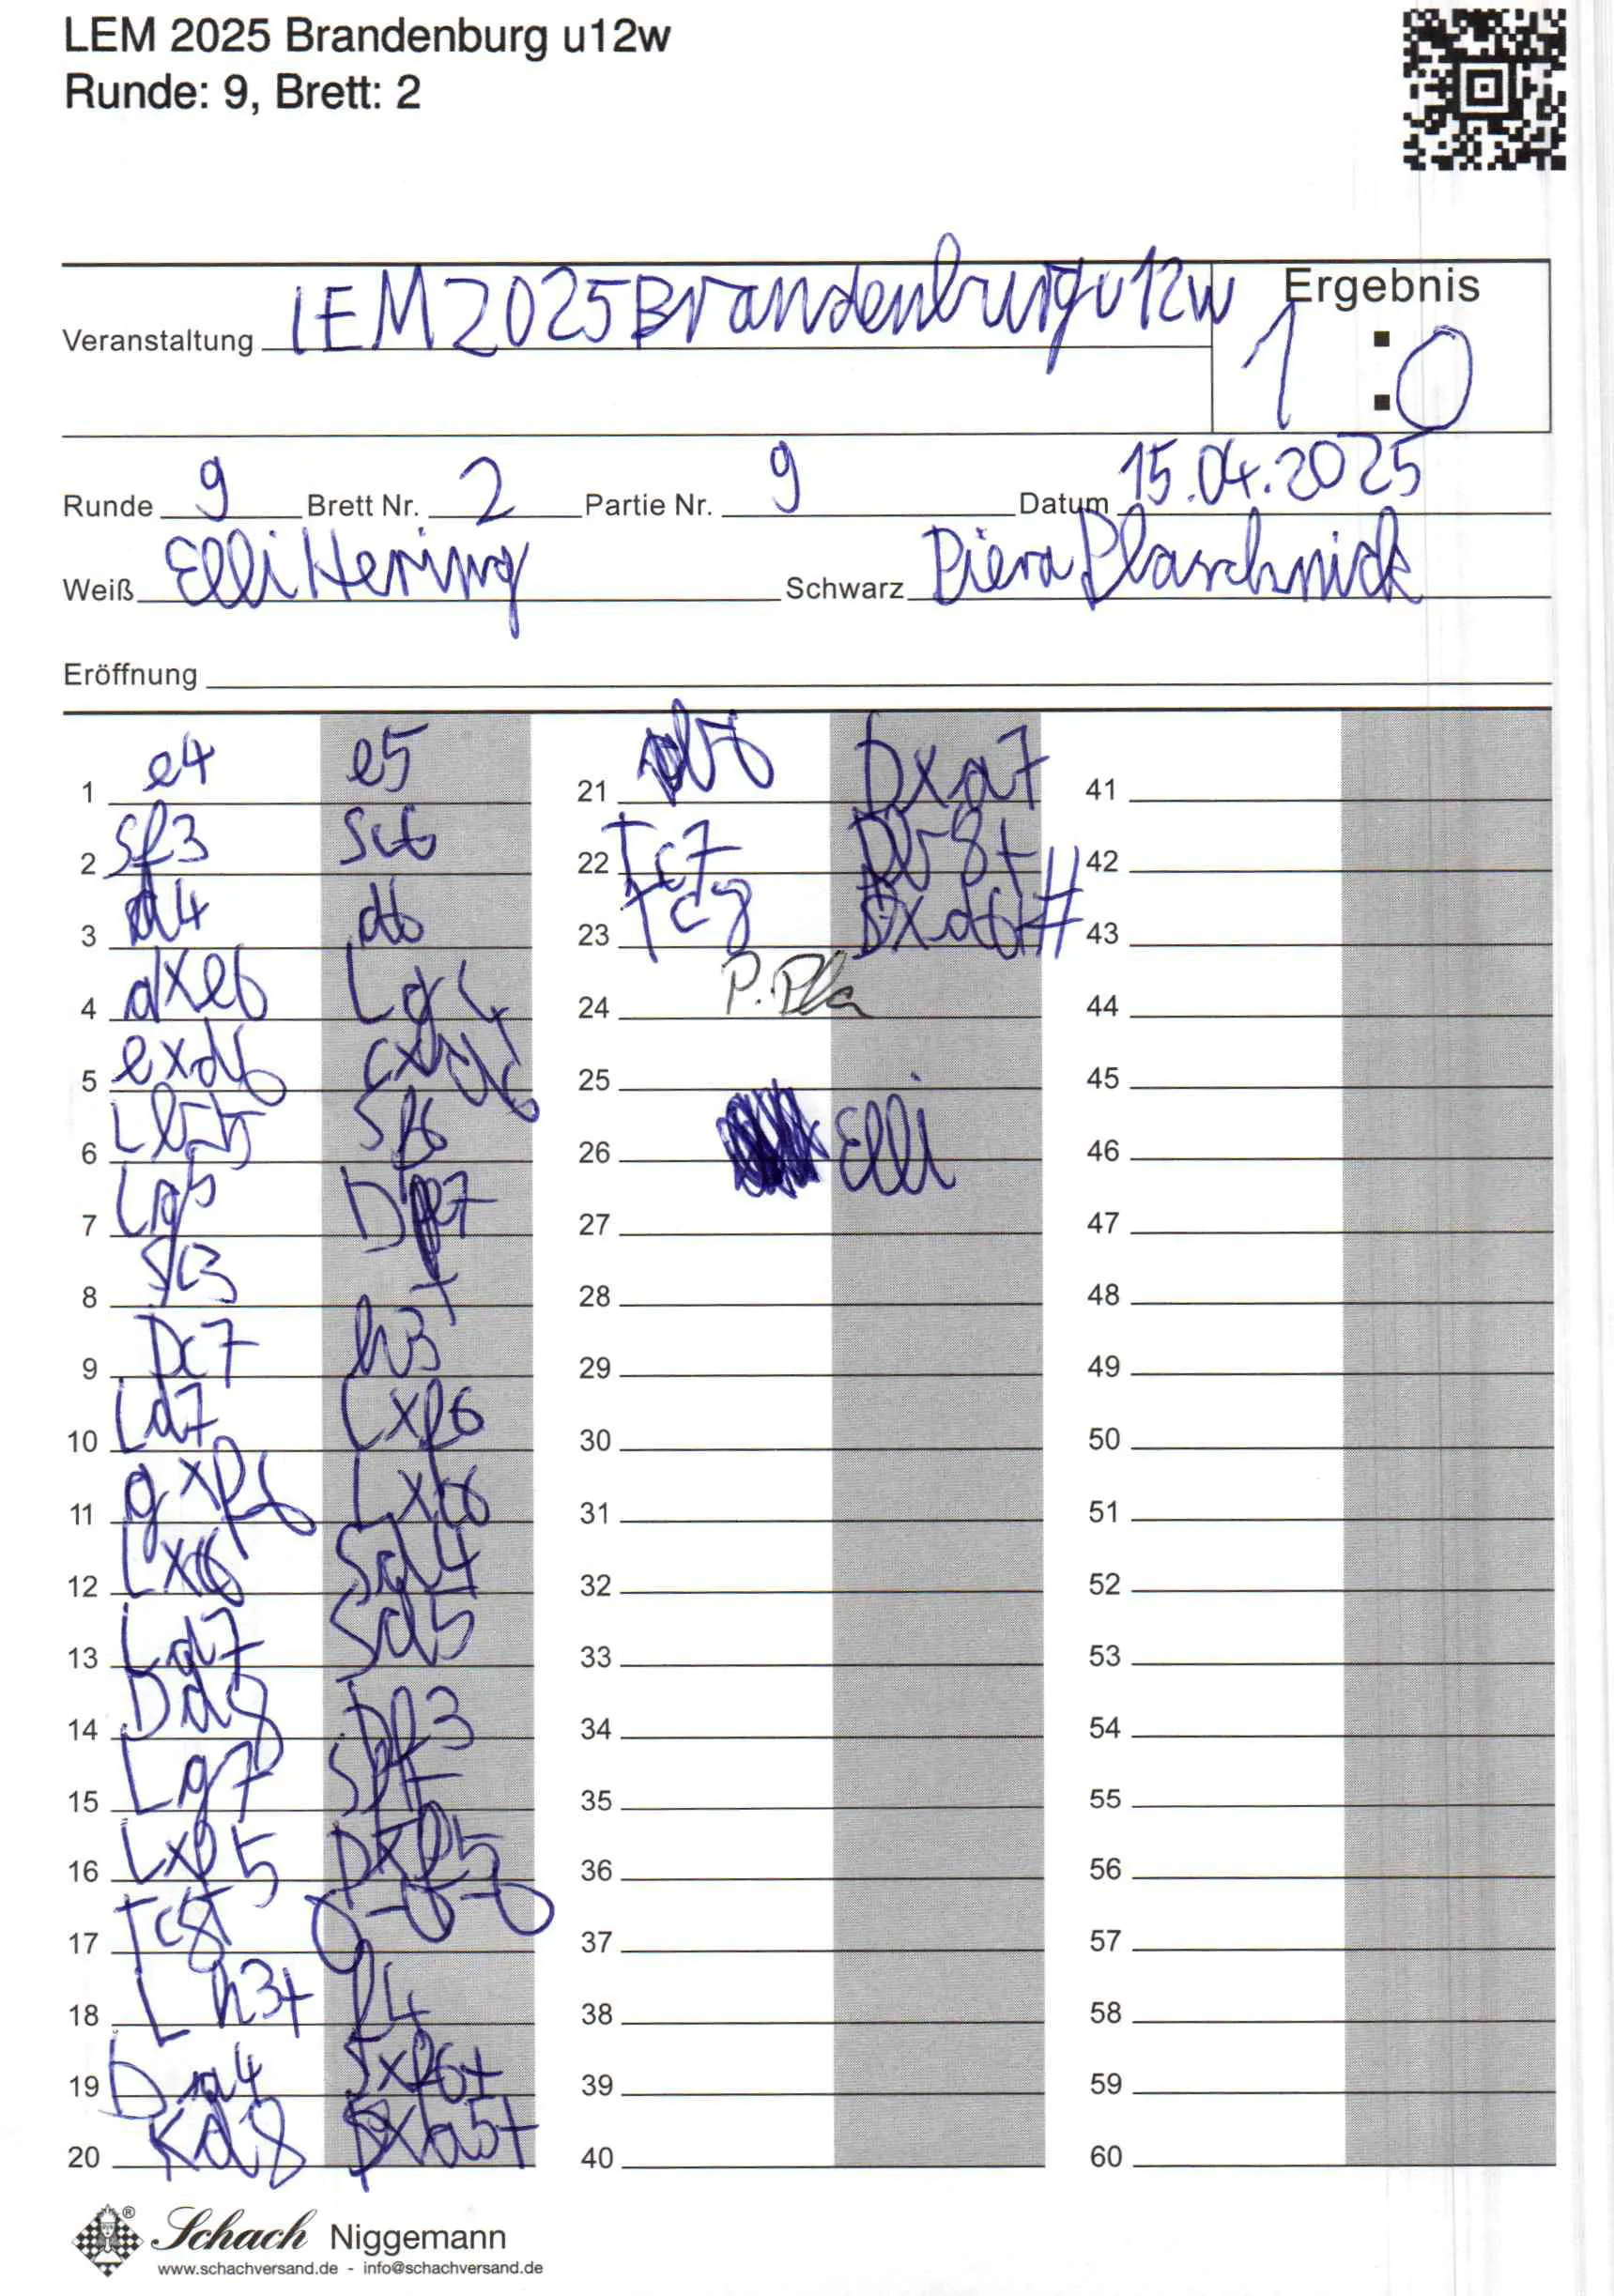 LEM 2025 Brandenburg u12w
Runde: 9, Brett: 2
Veranstaltung LEM 2025 Brandenburg u12w
Ergebnis 1:0
Runde 9 Brett Nr. 2 Partie Nr. 9 Datum 15.04.2025
Weiß Elli Hering Schwarz Piera Plaschnick
Eröffnung
1 e4 e5
2 Sf3 Sc6
3 d4 d6
4 dxe6 Lg4
5 exd6 cxd6
6 Lb5 Sf6
7 Lg5 De7
8 Sc3 +
9 Dc7 h3
10 Ld7 Lxf6
11 gxf6 Lxc6
12 Lxc6 Sd4
13 Ld7 Sd5
14 Dd8 Df3
15 Lg7 Sf5
16 Lxf5 Dxf5
17 Tc8 0-0-0
18 Lh3+ f4
19 Da4 Sxf6+
20 Kd8 Dxa5+
21 b6 Dxa7
22 Tc7 Db8+
23 Tc8 Dxd6#
24 P. Pla
25
26 Elli
27
28
29
30
31
32
33
34
35
36
37
38
39
40
41
42
43
44
45
46
47
48
49
50
51
52
53
54
55
56
57
58
59
60
Schach Niggemann
www.schachversand.de - info@schachversand.de